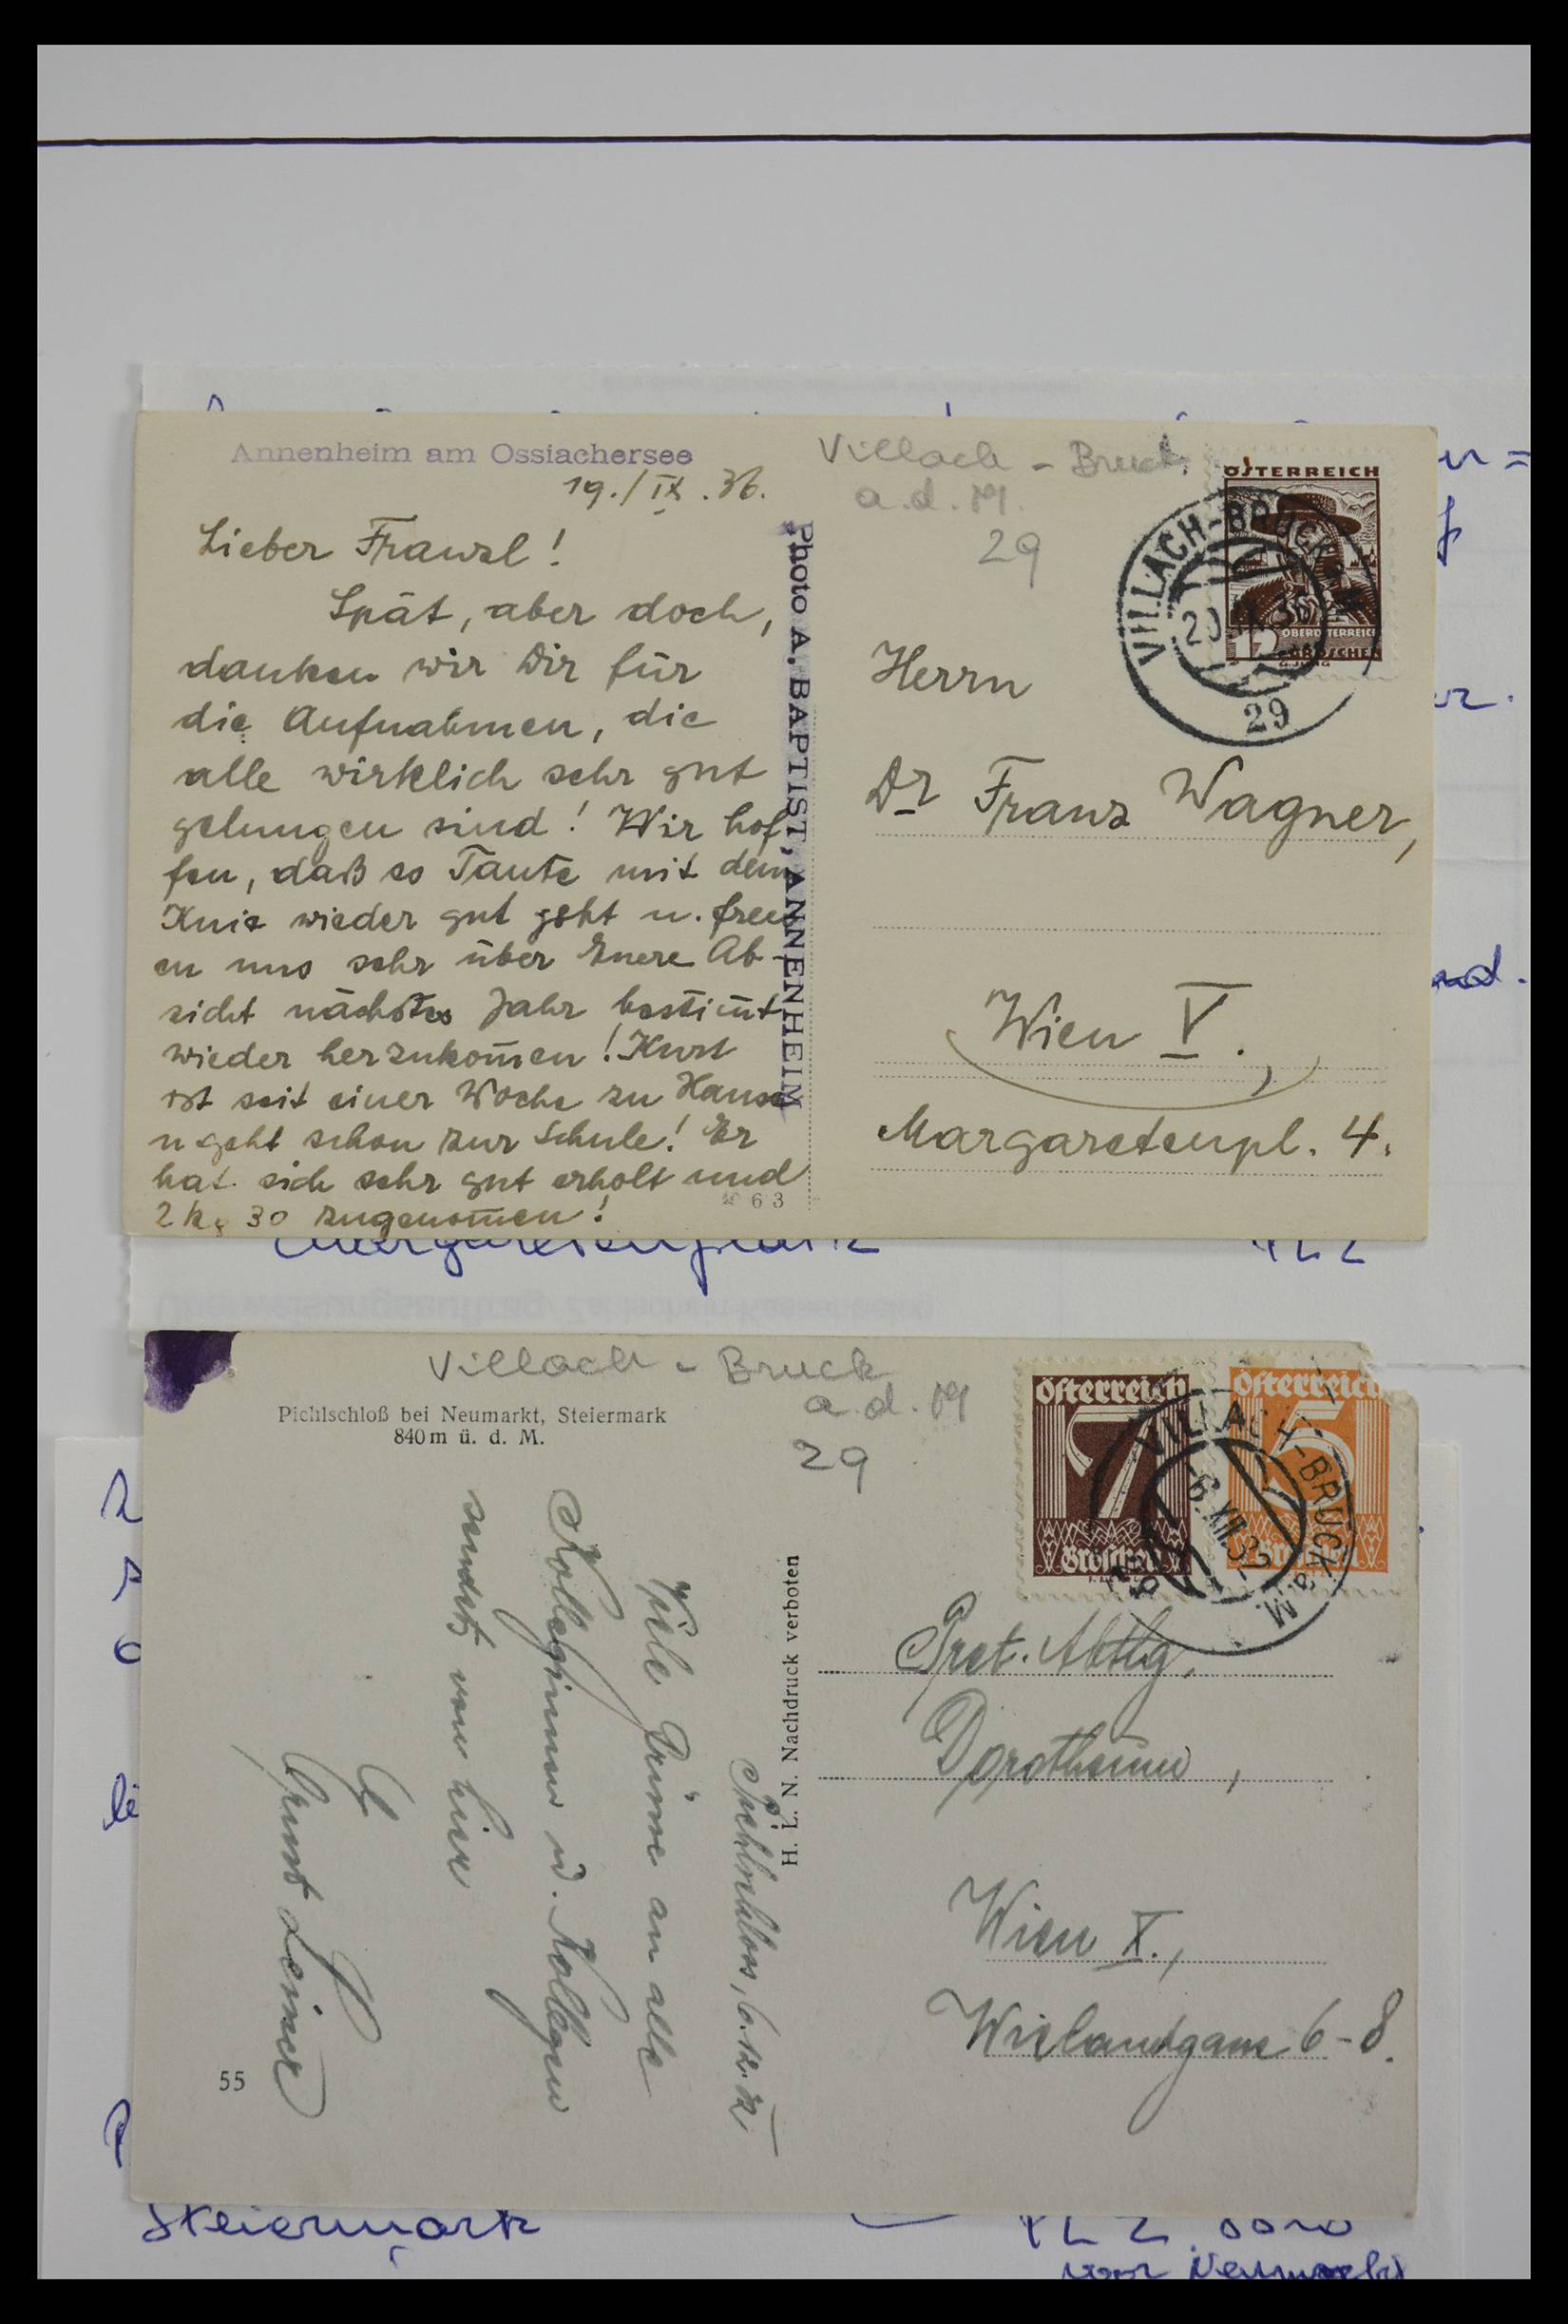 Annenheim am Ossiachersee
19./IX.36.
Lieber Franzl!
Spät, aber doch,
danken wir Dir für
die Aufnahmen, die
alle wirklich sehr gut
gelungen sind! Wir hof
fen, daß es Tante mit dem
Knie wieder gut geht u. freu
en uns sehr über Euere Ab-
sicht nächstes Jahr bestim̄t
wieder herzukom̄en! Kurt
ist seit einer Woche zu Hause
u geht schon zur Schule! Er
hat sich sehr gut erholt und
2 kg 30 zugenom̄en!
Photo A. BAPTIST, ANNENHEIM
63
Villach - Bruck
a.d.M.
29
ÖSTERREICH
OBERÖSTERREICH
12 GROSCHEN
VILLACH-BRUCK
20.IX.36
29
Herrn
Dr Franz Wagner,
Wien V.,
Margaretenpl. 4.
Villach - Bruck
a.d.M
29
Pichlschloß bei Neumarkt, Steiermark
840 m ü. d. M.
Österreich
7
Groschen
Österreich
5
Groschen
VILLACH-BRUCK a.M.
6.XII.32
H. L. N. Nachdruck verboten
6.12.32
Viele Grüsse an alle
Kolleginnen u. Kollegen
sendet von hier
Ernst
55
Pret. Abtlg.
Dorotheum,
Wien X.,
Wielandgasse 6-8.
Steiermark
PLZ